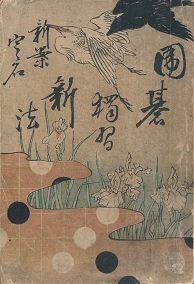 囲碁
獨習
新法
新案定石